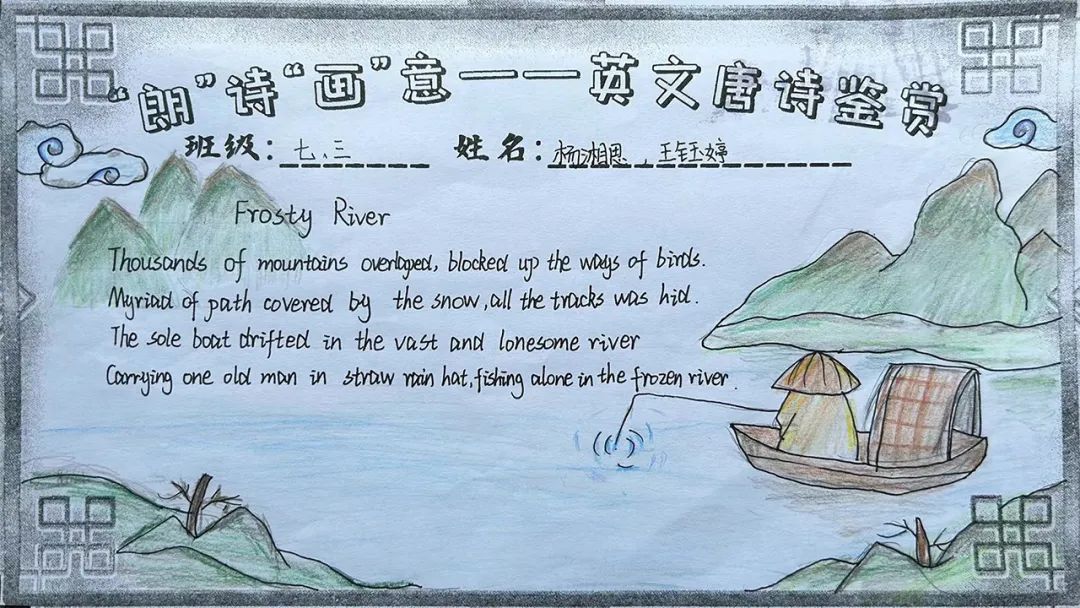 “朗”诗“画”意——英文唐诗鉴赏
班级：七、三 姓名：杨湘思，王钰婷
Frosty River
Thousands of mountains overlaped, blocked up the ways of birds.
Myriad of path covered by the snow, all the tracks was hid.
The sole boat drifted in the vast and lonesome river
Carrying one old man in straw rain hat, fishing alone in the frozen river.